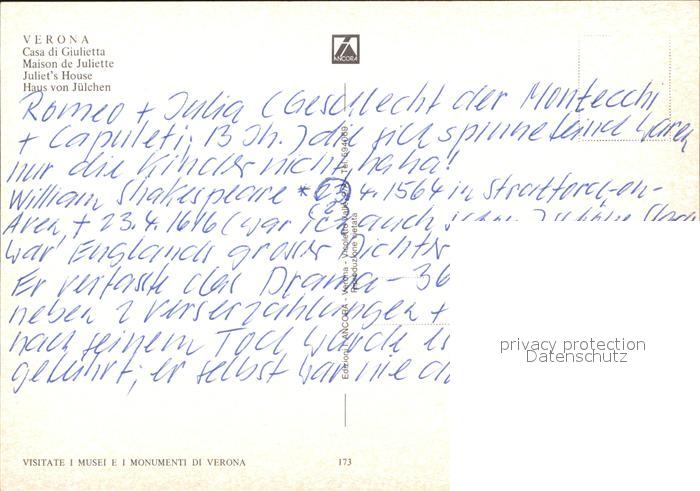 VERONA
Casa di Giulietta
Maison de Juliette
Juliet's House
Haus von Jülchen
ANCORA
Romeo + Julia (Geschlecht der Montecchi
+ Capuleti, 13 Jh.) die sich spinnefeind waren
nur die Kinder nicht, haha!
William Shakespeare * 23 4. 1564 in Stratford-on-
Aven + 23.4.1616 (war ich auch
war Englands grosser Dichter
Er verfasste das Drama - 36
neben 2 Verserzählungen +
nach seinem Tod wurde
geführt; er selbst war nie
Edizioni ANCORA - Verona - Vicoletto
Riproduzione vietata
privacy protection
Datenschutz
VISITATE I MUSEI E I MONUMENTI DI VERONA
173